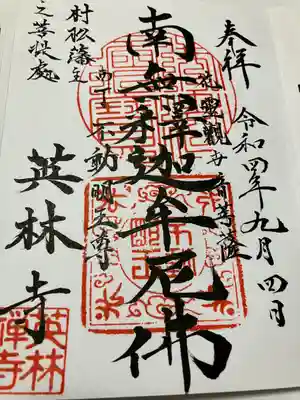 奉拝
令和四年九月四日
観世音菩薩
南無釋迦牟尼佛
不動明王尊
村松藩主
之菩提處
英林寺
英林禅寺